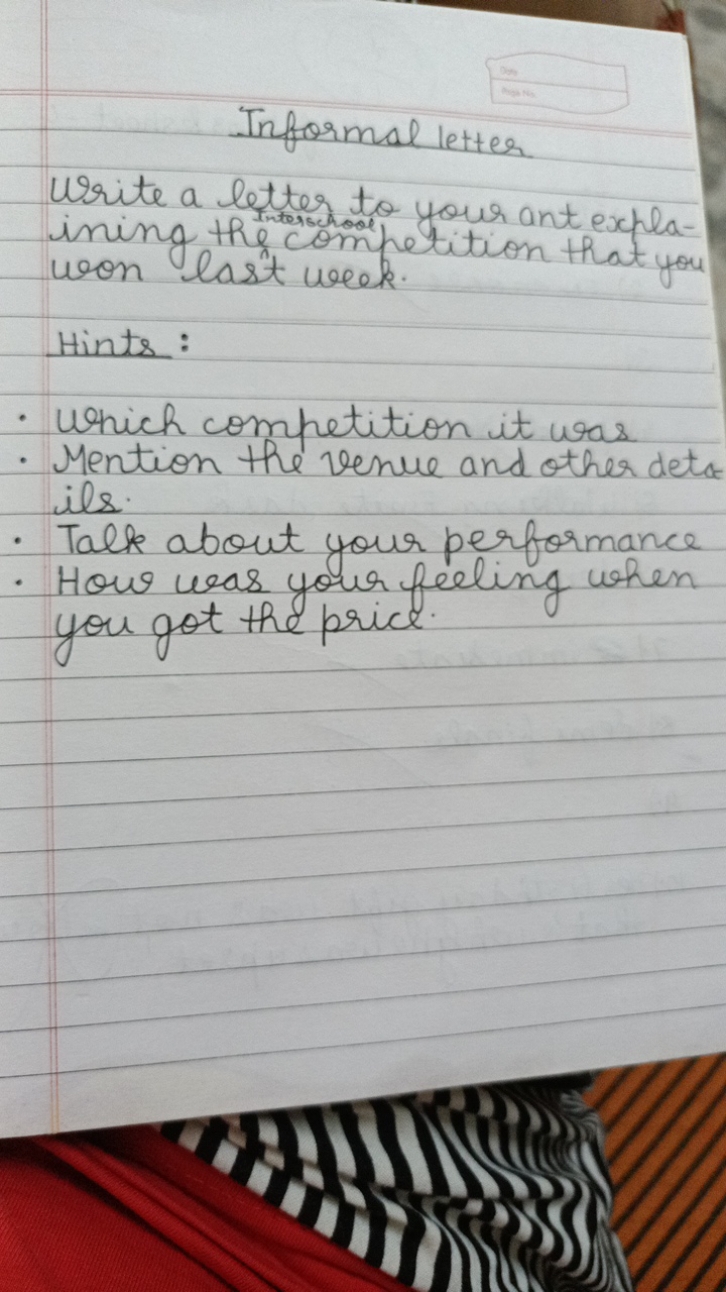 Date
Page No.
Informal letter
Write a letter to your ant expla-
ining the Interschool competition that you
won last week.
Hints :
• Which competition it was
• Mention the venue and other deta
ils.
• Talk about your performance
• How was your feeling when
you got the price.